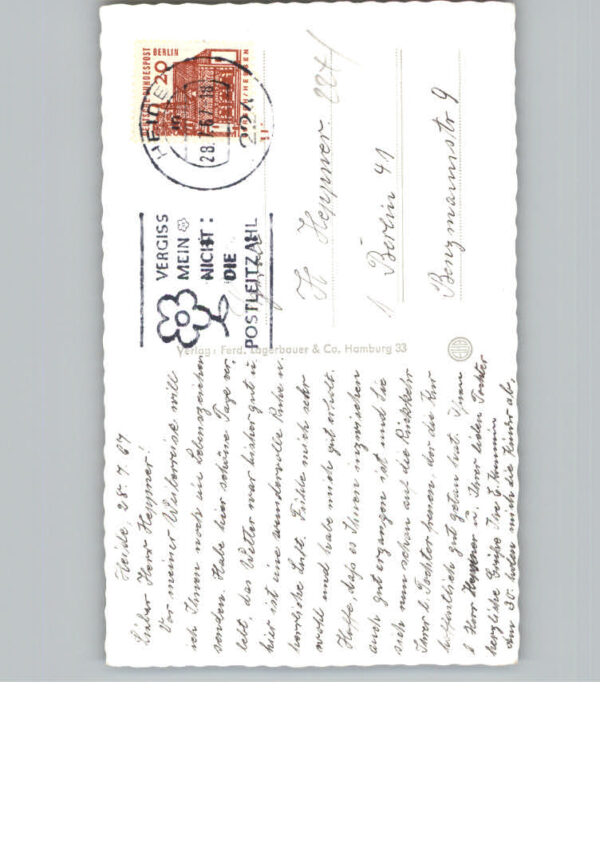 Heide 28.7.67
Lieber Herr Heppner!
Vor meiner Weiterreise will
ich Ihnen noch ein Lebenszeichen
senden. Habe hier schöne Tage ver-
lebt, das Wetter war bisher gut u
hier ist eine wundervolle Ruhe u.
herrliche Luft. Fühle mich sehr
wohl und habe mich gut erholt.
Hoffe, daß es Ihnen inzwischen
auch gut ergangen ist und Sie
sich nun schon auf die Rückkehr
Ihrer l. Tochter freuen, der die Kur
hoffentlich gut getan hat. Ihnen
l Herr Heppner u. Ihrer lieben Tochter
herzliche Grüße Ihre
Am 30. holen mich die Kinder ab.
DEUTSCHE BUNDESPOST BERLIN
20
HEIDE
28.7.67
224
VERGISS
MEIN
NICHT:
DIE
POSTLEITZAHL
H Heppner
1 Berlin 41
Benzmannstr 9
Verlag: Ferd. Lagerbauer & Co. Hamburg 33